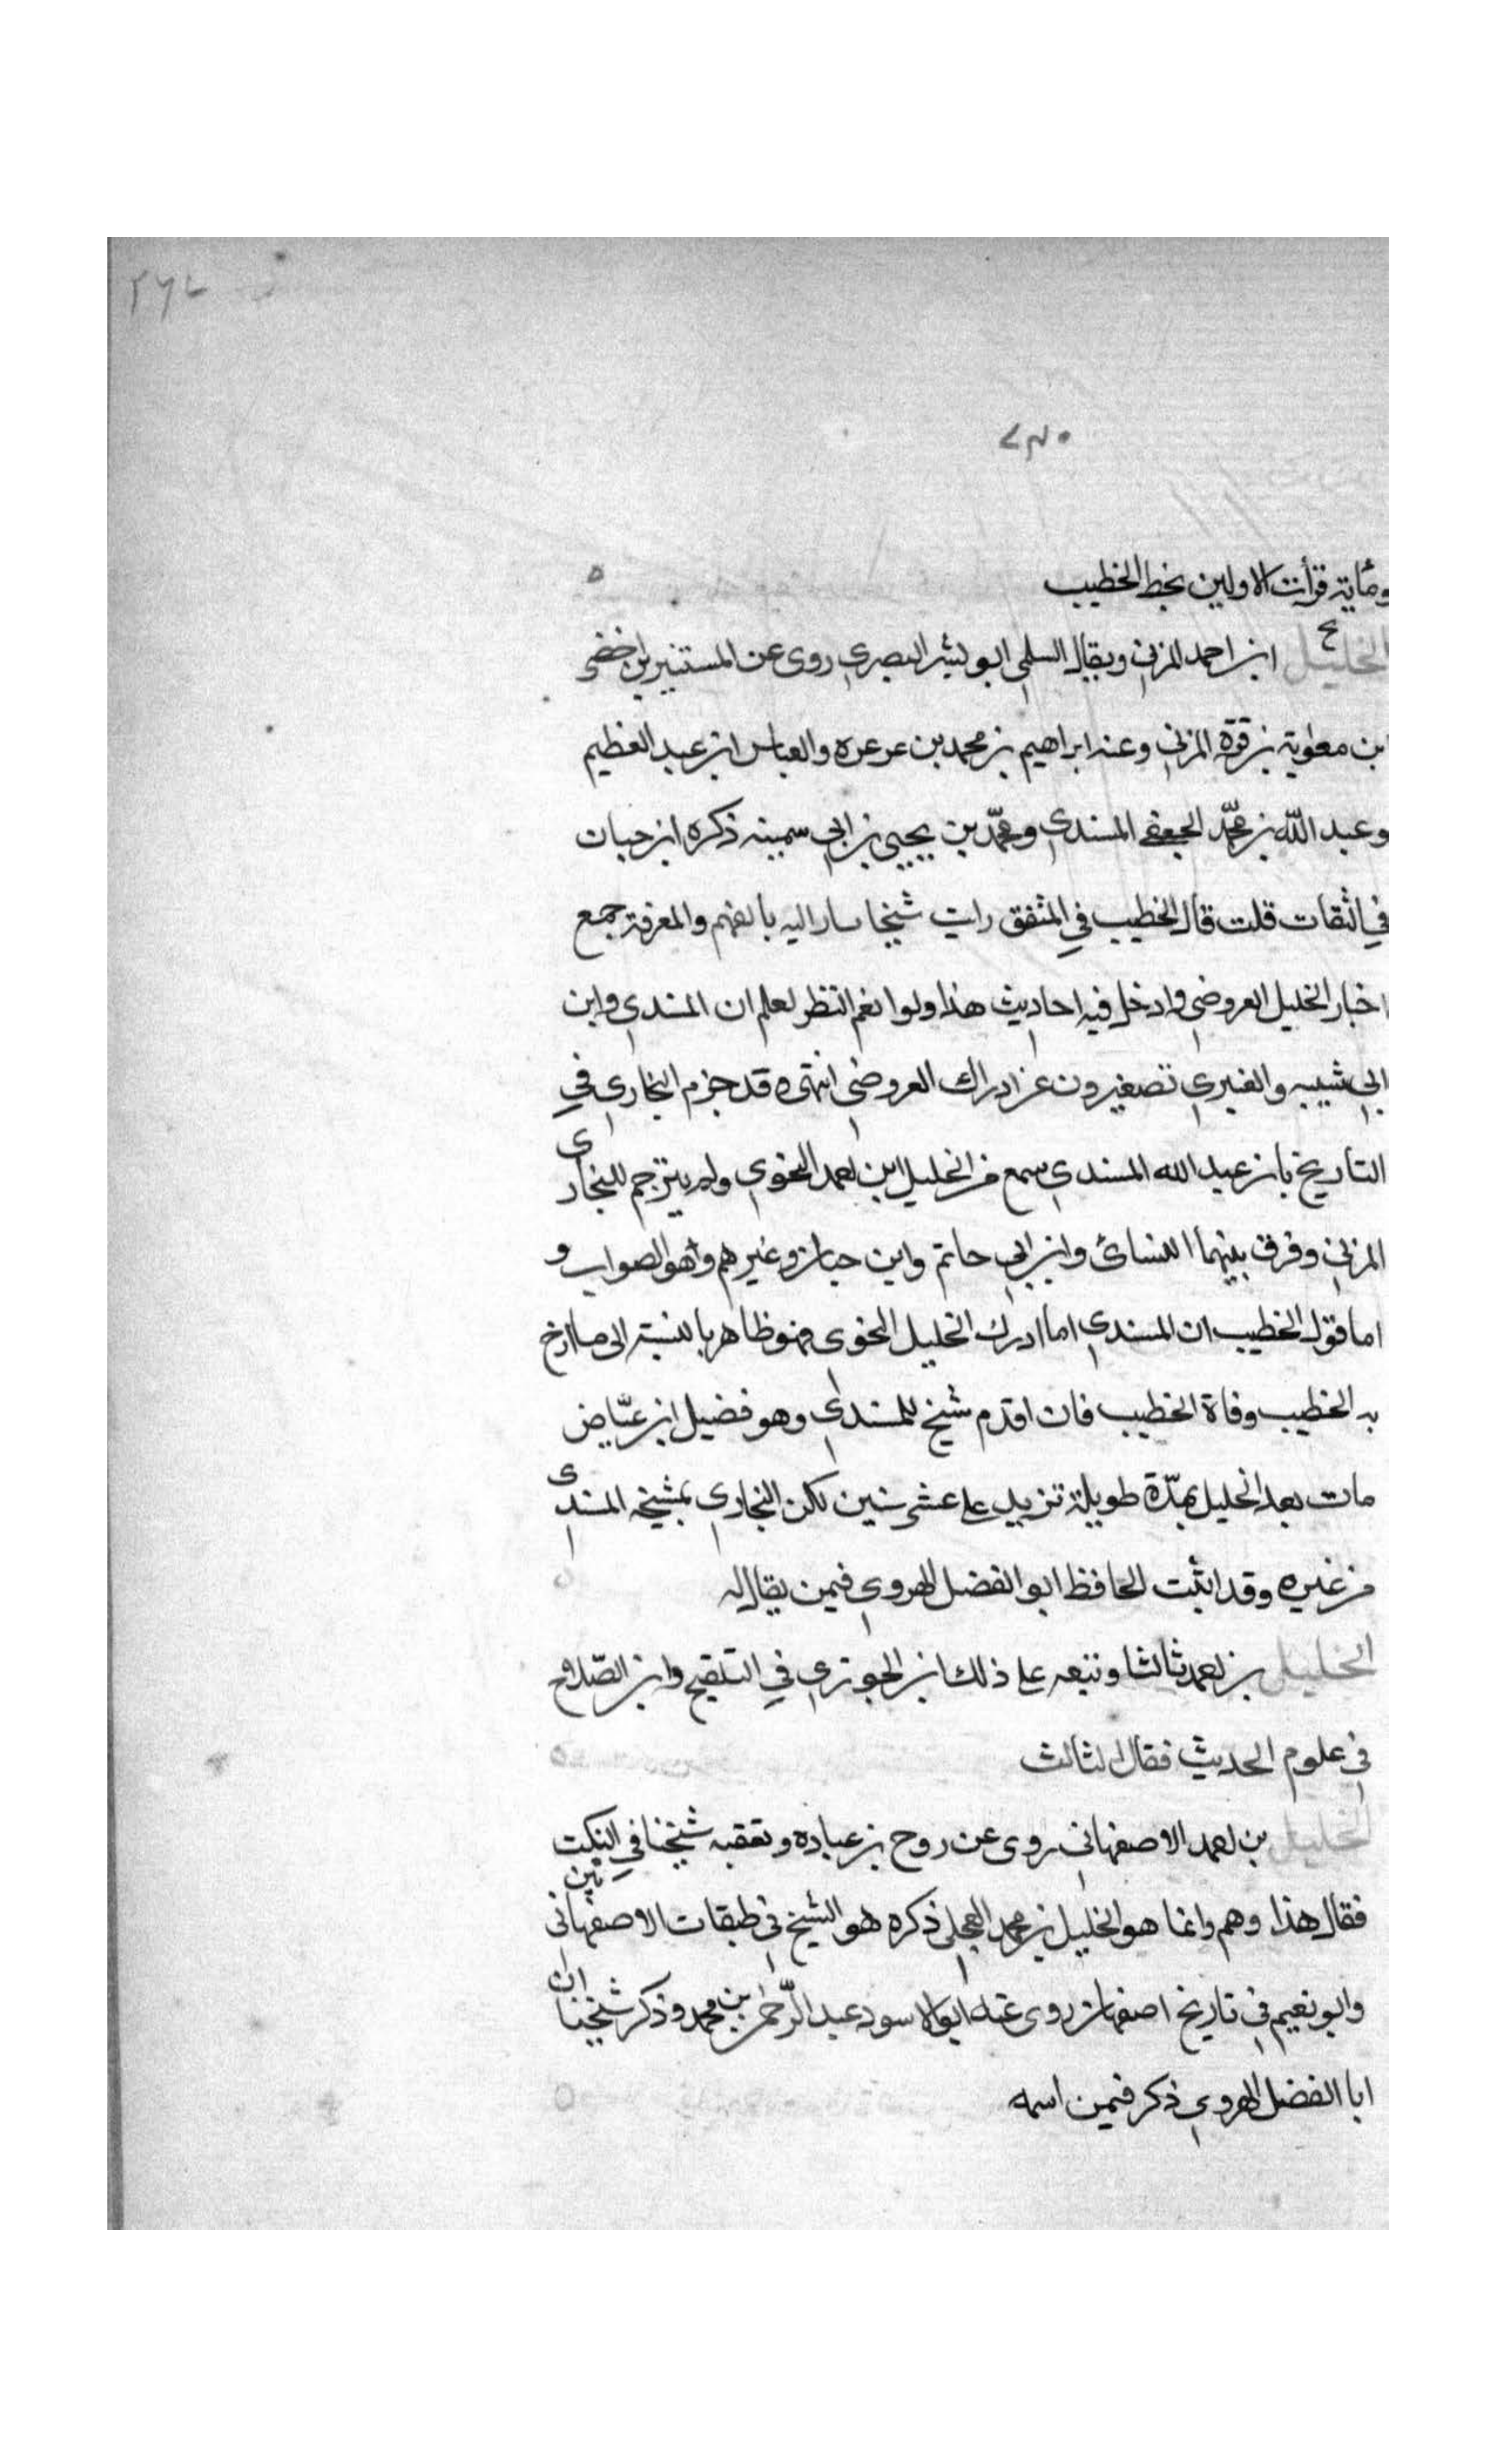 ٢٦٧
٧٣٠
ومأية قرأت الاولين بخط الخطيب
الخليل ابن احمد المزني ويقال السلمي ابو بشر البصري روى عن المستنير بن اخضر
ابن معوية بن قرة المزني وعنه ابراهيم بن محمد بن عرعره والعباس ابن عبد العظيم
وعبد الله بن محمّد الجعفي المسندي ومحمّد بن يحيى بن ابي سمينه ذكره ابن حبان
في الثقات قلت قال الخطيب في المتفق رايت شيخا يسار اليه بالفهم والمعرفة جمع
اخبار الخليل العروضي وادخل فيه احاديث هذا ولو انعم النظر لعلم ان المسندي وابن
ابي شيبه والعنبري تصغيرون عن ادراك العروضي انتهى وقد جزم البخاري في
التاريخ بان عبد الله المسندي سمع من الخليل ابن احمد النحوي ولم يترجم للبخارى
المزني وفرق بينهما النسائ وابن ابي حاتم وابن حبان وغيرهم وهو الصواب و
اما قول الخطيب ان المسندي اما ادرك الخليل النحوى فهو ظاهر بالنسبة الى ما ارخ
به الخطيب وفاة الخطيب فان اقدم شيخ للمسندي وهو فضيل ابن عيّاض
مات بعد الخليل بمدّة طويلة تزيد على عشر سنين لكن البخاري بمشيخه المسندى
من غيره وقد اثبت الحافظ ابو الفضل الهروي فيمن يقال له
الخليل بن احمد ثالثا وتبعه على ذلك ابن الجوزي في التلقيح وابن الصّلاح
في علوم الحديث فقال الثالث
الخليل بن احمد الاصفهاني روى عن روح بن عباده وتعقبه شيخنا في النكت
فقال هذا وهم وانما هو الخليل بن محمد العجلي ذكره هو الشيخ في طبقات الاصفهانيين
وابو نعيم في تاريخ اصفهان روى عنه ابو الاسود عبد الرّحمن بن محمد وذكر شيخنا ان
ابا الفضل الهروي ذكر فيمن اسمه